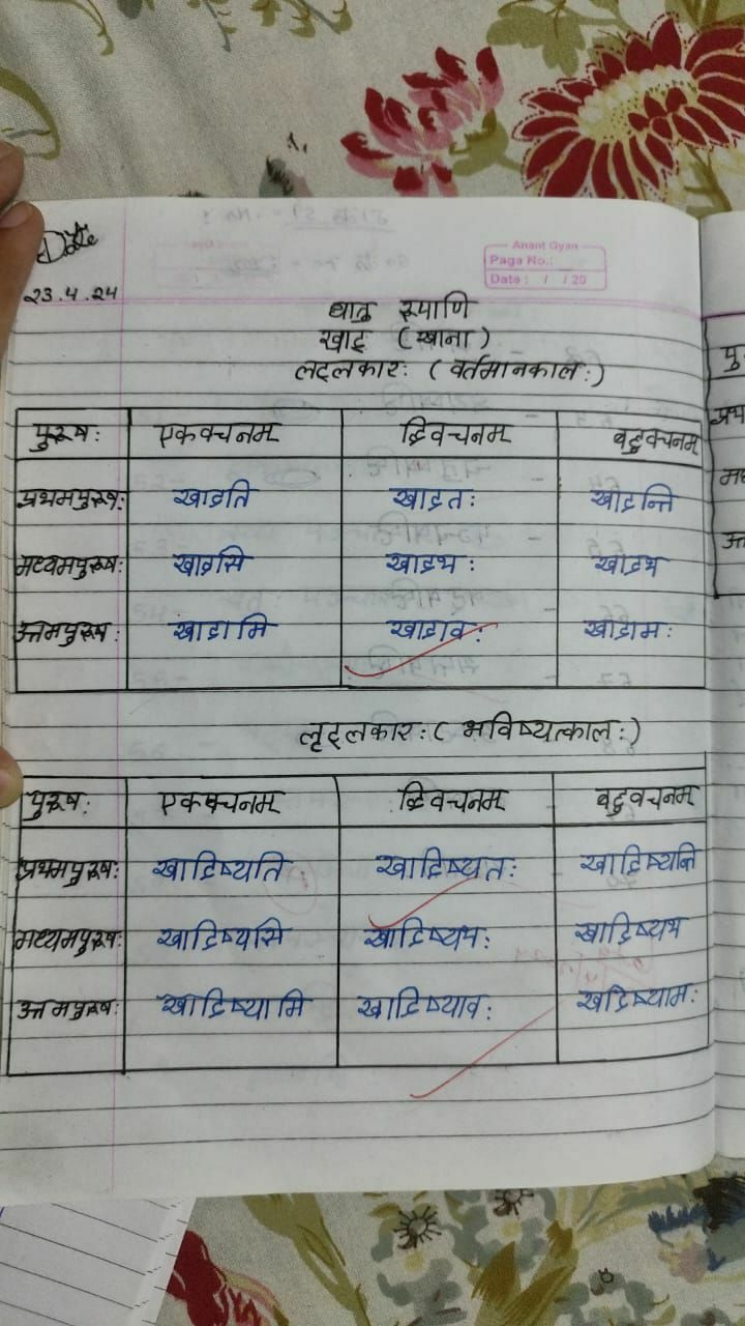 Date
23.4.24
Anant Gyan
Page No.:
Date: / / 20
धातु रूपाणि
खाद् (खाना)
लट्लकार: (वर्तमानकाल:)
पुरूष: एकवचनम् द्विवचनम् बहुवचनम्
प्रथमपुरूष: खादति खादत: खादन्ति
मध्यमपुरूष: खादसि खादथ: खादथ
उत्तमपुरूष: खादामि खादाव: खादाम:
लृट्लकार: (भविष्यत्काल:)
पुरूष: एकवचनम् द्विवचनम् बहुवचनम्
प्रथमपुरूष: खादिष्यति खादिष्यत: खादिष्यन्ति
मध्यमपुरूष: खादिष्यसि खादिष्यथ: खादिष्यथ
उत्तमपुरूष: खादिष्यामि खादिष्याव: खदिष्याम: